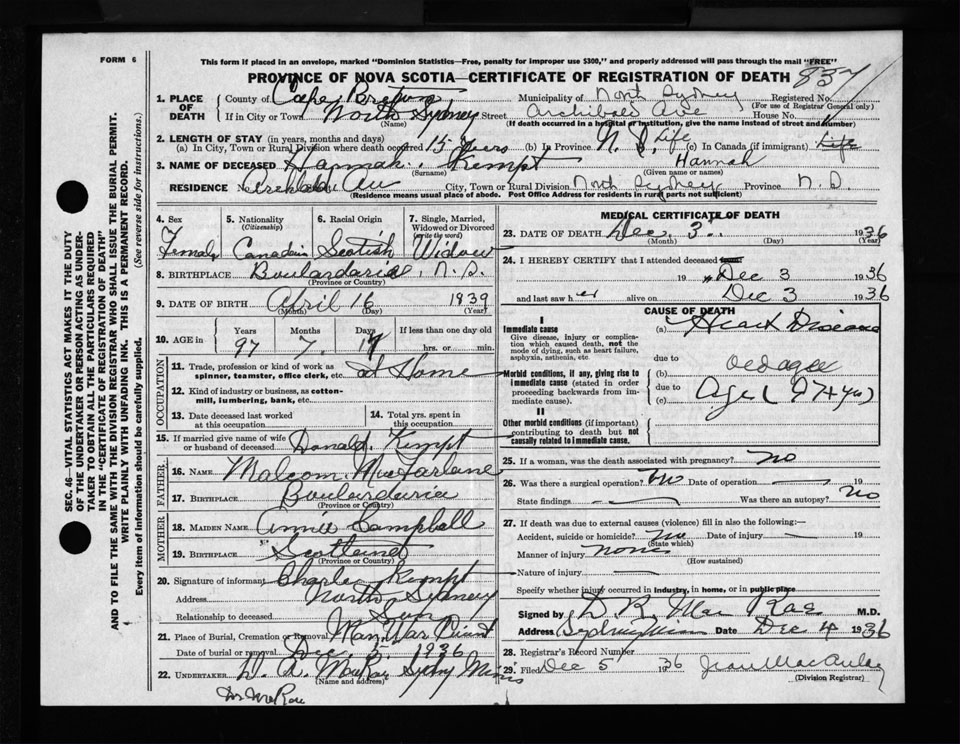 FORM 6
This form if placed in an envelope, marked "Dominion Statistics—Free, penalty for improper use $300," and properly addressed will pass through the mail "FREE"
PROVINCE OF NOVA SCOTIA—CERTIFICATE OF REGISTRATION OF DEATH 837
1. PLACE OF DEATH
County of Cape Breton Municipality of North Sydney Registered No.
(For use of Registrar General only)
If in City or Town North Sydney Street Archibald Ave House No.
(Name) (If death occurred in a hospital or institution, give the name instead of street and number)
2. LENGTH OF STAY (in years, months and days)
(a) In City, Town or Rural Division where death occurred 15 years (b) In Province N. S. Life (c) In Canada (if immigrant) Life
3. NAME OF DECEASED Hannah Kempt Hannah
(Surname) (Given name or names)
RESIDENCE No. Archibald Av City, Town or Rural Division North Sydney Province N. S.
(Residence means usual place of abode. Post Office Address for residents in rural parts not sufficient)
4. Sex Female
5. Nationality (Citizenship) Canadain
6. Racial Origin Scotish
7. Single, Married, Widowed or Divorced (write the word) Widow
8. BIRTHPLACE Boulardarie, N. S.
(Province or Country)
9. DATE OF BIRTH April 16 1839
(Month) (Day) (Year)
10. AGE in Years Months Days If less than one day old
97 7 17 hrs. or min.
OCCUPATION
11. Trade, profession or kind of work as spinner, teamster, office clerk, etc. at Home
12. Kind of industry or business, as cotton-mill, lumbering, bank, etc.
13. Date deceased last worked at this occupation
14. Total yrs. spent in this occupation
15. If married give name of wife or husband of deceased Donald Kempt
FATHER
16. NAME Malcom MacFarlane
17. BIRTHPLACE Boulardaria
(Province or Country)
MOTHER
18. MAIDEN NAME Annie Campbell
19. BIRTHPLACE Scotland
(Province or Country)
20. Signature of informant Charles Kempt
Address North Sydney
Relationship to deceased Son
21. Place of Burial, Cremation or Removal Man War Point
Date of burial or removal Dec 5 1936
22. UNDERTAKER D. A. McRae Sydney Mines
(Name and address)
Dr McRae
MEDICAL CERTIFICATE OF DEATH
23. DATE OF DEATH Dec 3 1936
(Month) (Day) (Year)
24. I HEREBY CERTIFY that I attended deceased
19 Dec 3 1936
and last saw her alive on Dec 3 1936
CAUSE OF DEATH
I
Immediate cause
Give disease, injury or complication which caused death, not the mode of dying, such as heart failure, asphyxia, asthenia, etc.
(a) Heart Disease
due to
Morbid conditions, if any, giving rise to immediate cause (stated in order proceeding backwards from immediate cause).
(b) old age
due to
(c) Age (97 4 yrs)
II
Other morbid conditions (if important) contributing to death but not causally related to immediate cause.
25. If a woman, was the death associated with pregnancy? no
26. Was there a surgical operation? No Date of operation — 19
State findings — Was there an autopsy? No
27. If death was due to external causes (violence) fill in also the following:—
Accident, suicide or homicide? No Date of injury — 19
(State which)
Manner of injury none
(How sustained)
Nature of injury —
Specify whether injury occurred in industry, in home, or in public place
Signed by D. R. Mac Rae M.D.
Address Sydney Mines Date Dec 4 1936
28. Registrar's Record Number
29. Filed Dec 5 1936 Jean MacAulay
(Division Registrar)
SEC. 46—VITAL STATISTICS ACT MAKES IT THE DUTY
OF THE UNDERTAKER OR PERSON ACTING AS UNDER-
TAKER TO OBTAIN ALL THE PARTICULARS REQUIRED
IN THE "CERTIFICATE OF REGISTRATION OF DEATH"
AND TO FILE THE SAME WITH THE DIVISION REGISTRAR WHO SHALL ISSUE THE BURIAL PERMIT.
WRITE PLAINLY WITH UNFADING INK. THIS IS A PERMANENT RECORD.
Every item of information should be carefully supplied. (See reverse side for instructions.)